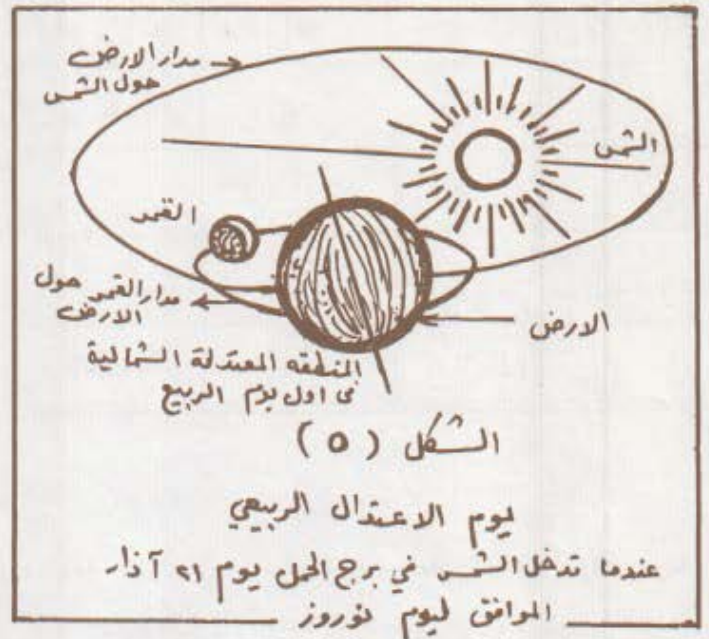 مدار الارض
حول الشمس
الشمس
القمر
مدار القمر حول
الارض
الارض
المنطقه المعتدلة الشمالية
في اول يوم الربيع
الشكل ( ٥ )
ليوم الاعتدال الربيعي
عندما تدخل الشمس في برج الحمل يوم ٢١ آذار
الموافق ليوم نوروز